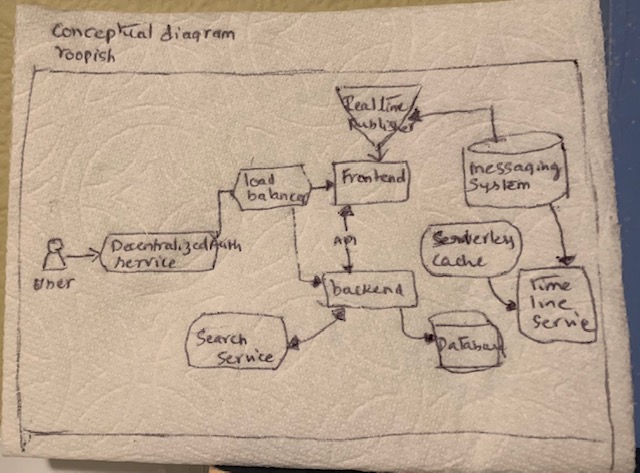 Conceptual diagram
roopish
Realtime
Publisher
load
balancer
Frontend
messaging
System
Decentralized Auth
Service
User
API
Serverless
cache
backend
Time
line
Service
Search
Service
Database